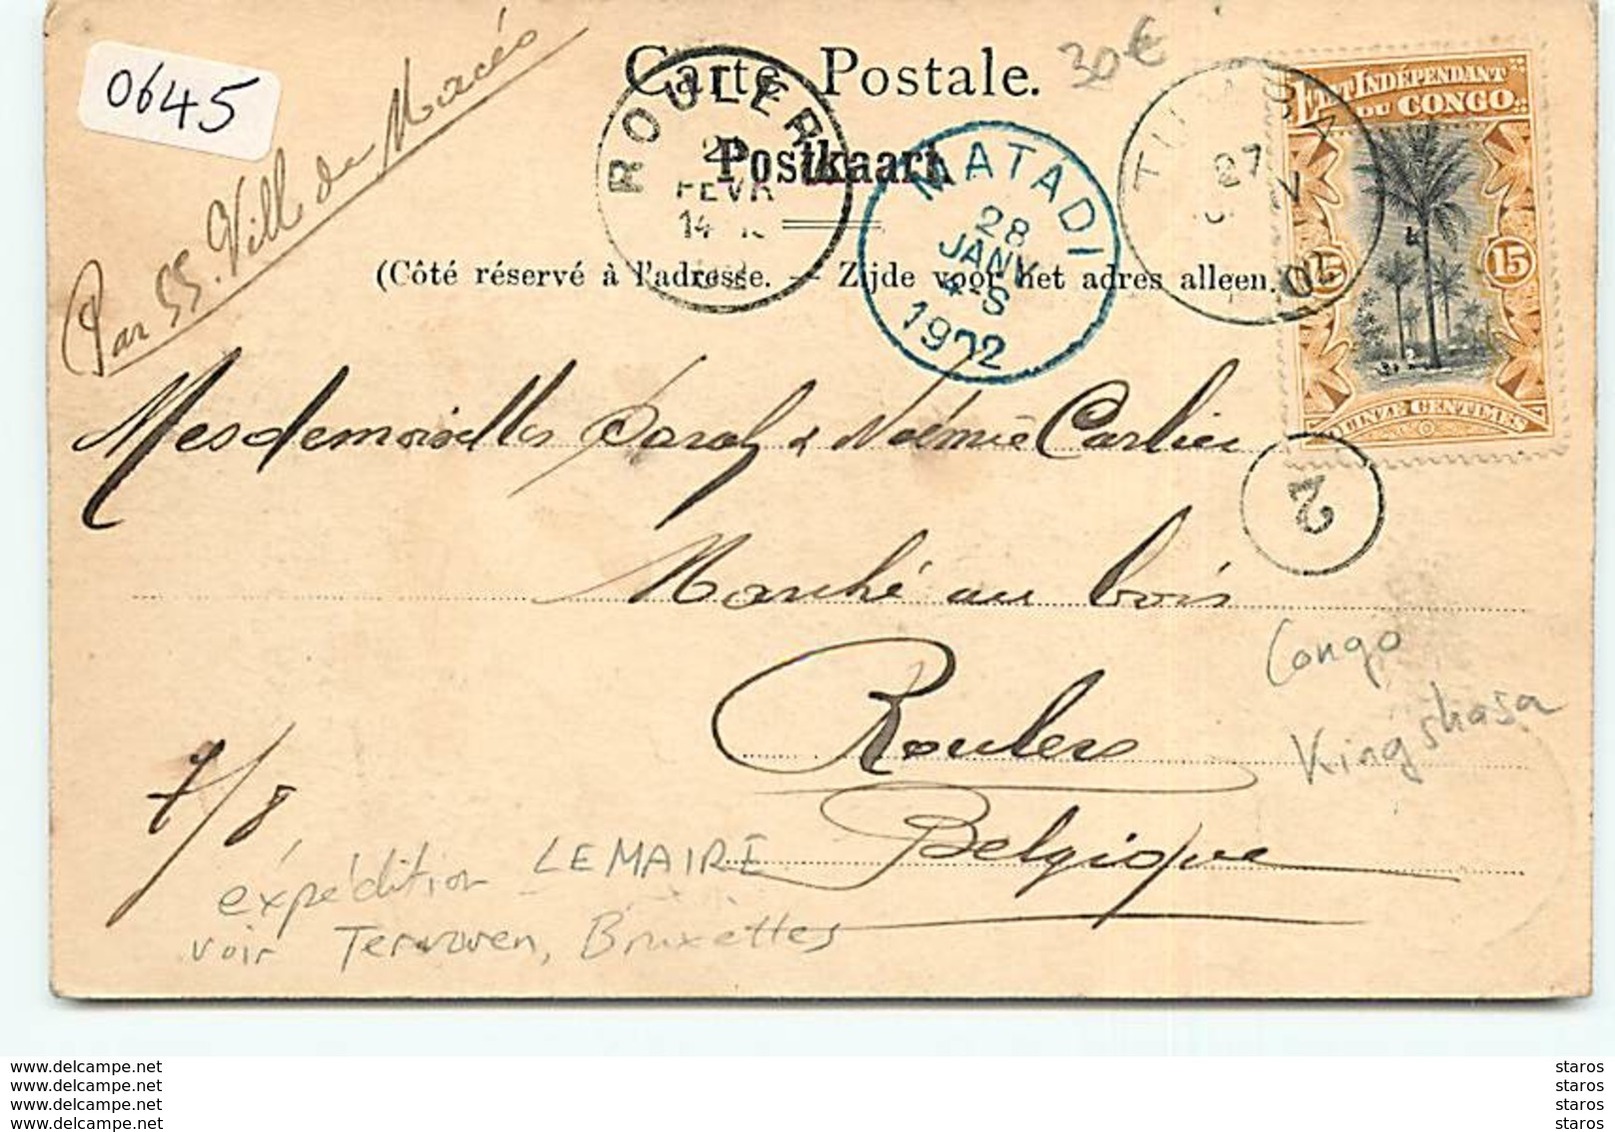 0645
Carte Postale.
30€
Postkaart.
(Côté réservé à l'adresse. — Zijde voor het adres alleen.)
Par SS. Ville de Macéo
ROULERS
FEVR
MATADI
28
JANV
4-S
1902
TUMBA
27
ETAT INDÉPENDANT
DU CONGO
15 15
QUINZE CENTIMES
Mesdemoiselles Sarah & Noémie Carlier
2
Marché au bois
Roulers
Belgique
Congo
Kingshasa
7/8
expédition LEMAIRE
voir Tervuren, Bruxelles
www.delcampe.net staros
www.delcampe.net staros
www.delcampe.net staros
www.delcampe.net staros